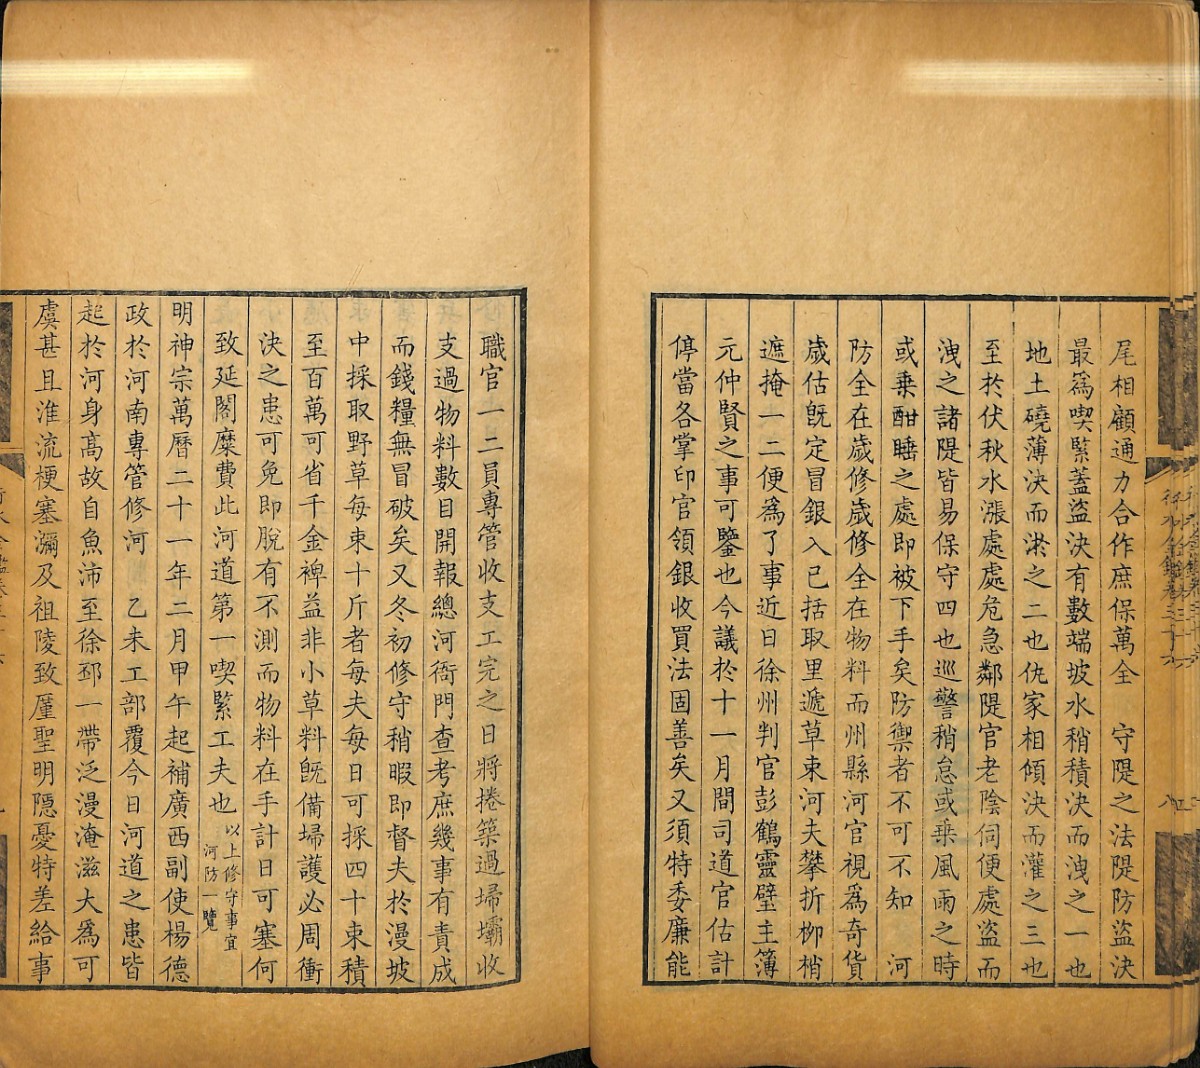 尾相顧通力合作庶保萬全　守隄之法隄防盜決
最為喫緊蓋盜決有數端坡水稍積決而洩之一也
地土磽薄決而淤之二也仇家相傾決而灌之三也
至於伏秋水漲處處危急鄰隄官老陰伺便處盜而
洩之諸隄皆易保守四也巡警稍怠或乗風雨之時
或乗酣睡之處即被下手矣防禦者不可不知　河
防全在歲修歲修全在物料而州縣河官視為奇貨
歲估既定冒銀入己括取里遞草束河夫攀折柳梢
遮掩一二便為了事近日徐州判官彭鶴靈璧主簿
元仲賢之事可鑒也今議於十一月間司道官估計
停當各掌印官領銀收買法固善矣又須特委廉能
職官一二員專管收支工完之日將捲築過埽壩收
支過物料數目開報總河衙門查考庶幾事有責成
而錢糧無冒破矣又冬初修守稍暇即督夫於漫坡
中採取野草每束十斤者每夫每日可採四十束積
至百萬可省千金裨益非小草料既備埽護必周衝
決之患可免即脫有不測而物料在手計日可塞何
致延閣糜費此河道第一喫緊工夫也以上修守事宜
河防一覽
明神宗萬曆二十一年二月甲午起補廣西副使楊德
政於河南專管修河　乙未工部覆今日河道之患皆
起於河身高故自魚沛至徐邳一帶泛漫淹滋大為可
虞甚且淮流梗塞瀰及祖陵致厪聖明隱憂特差給事